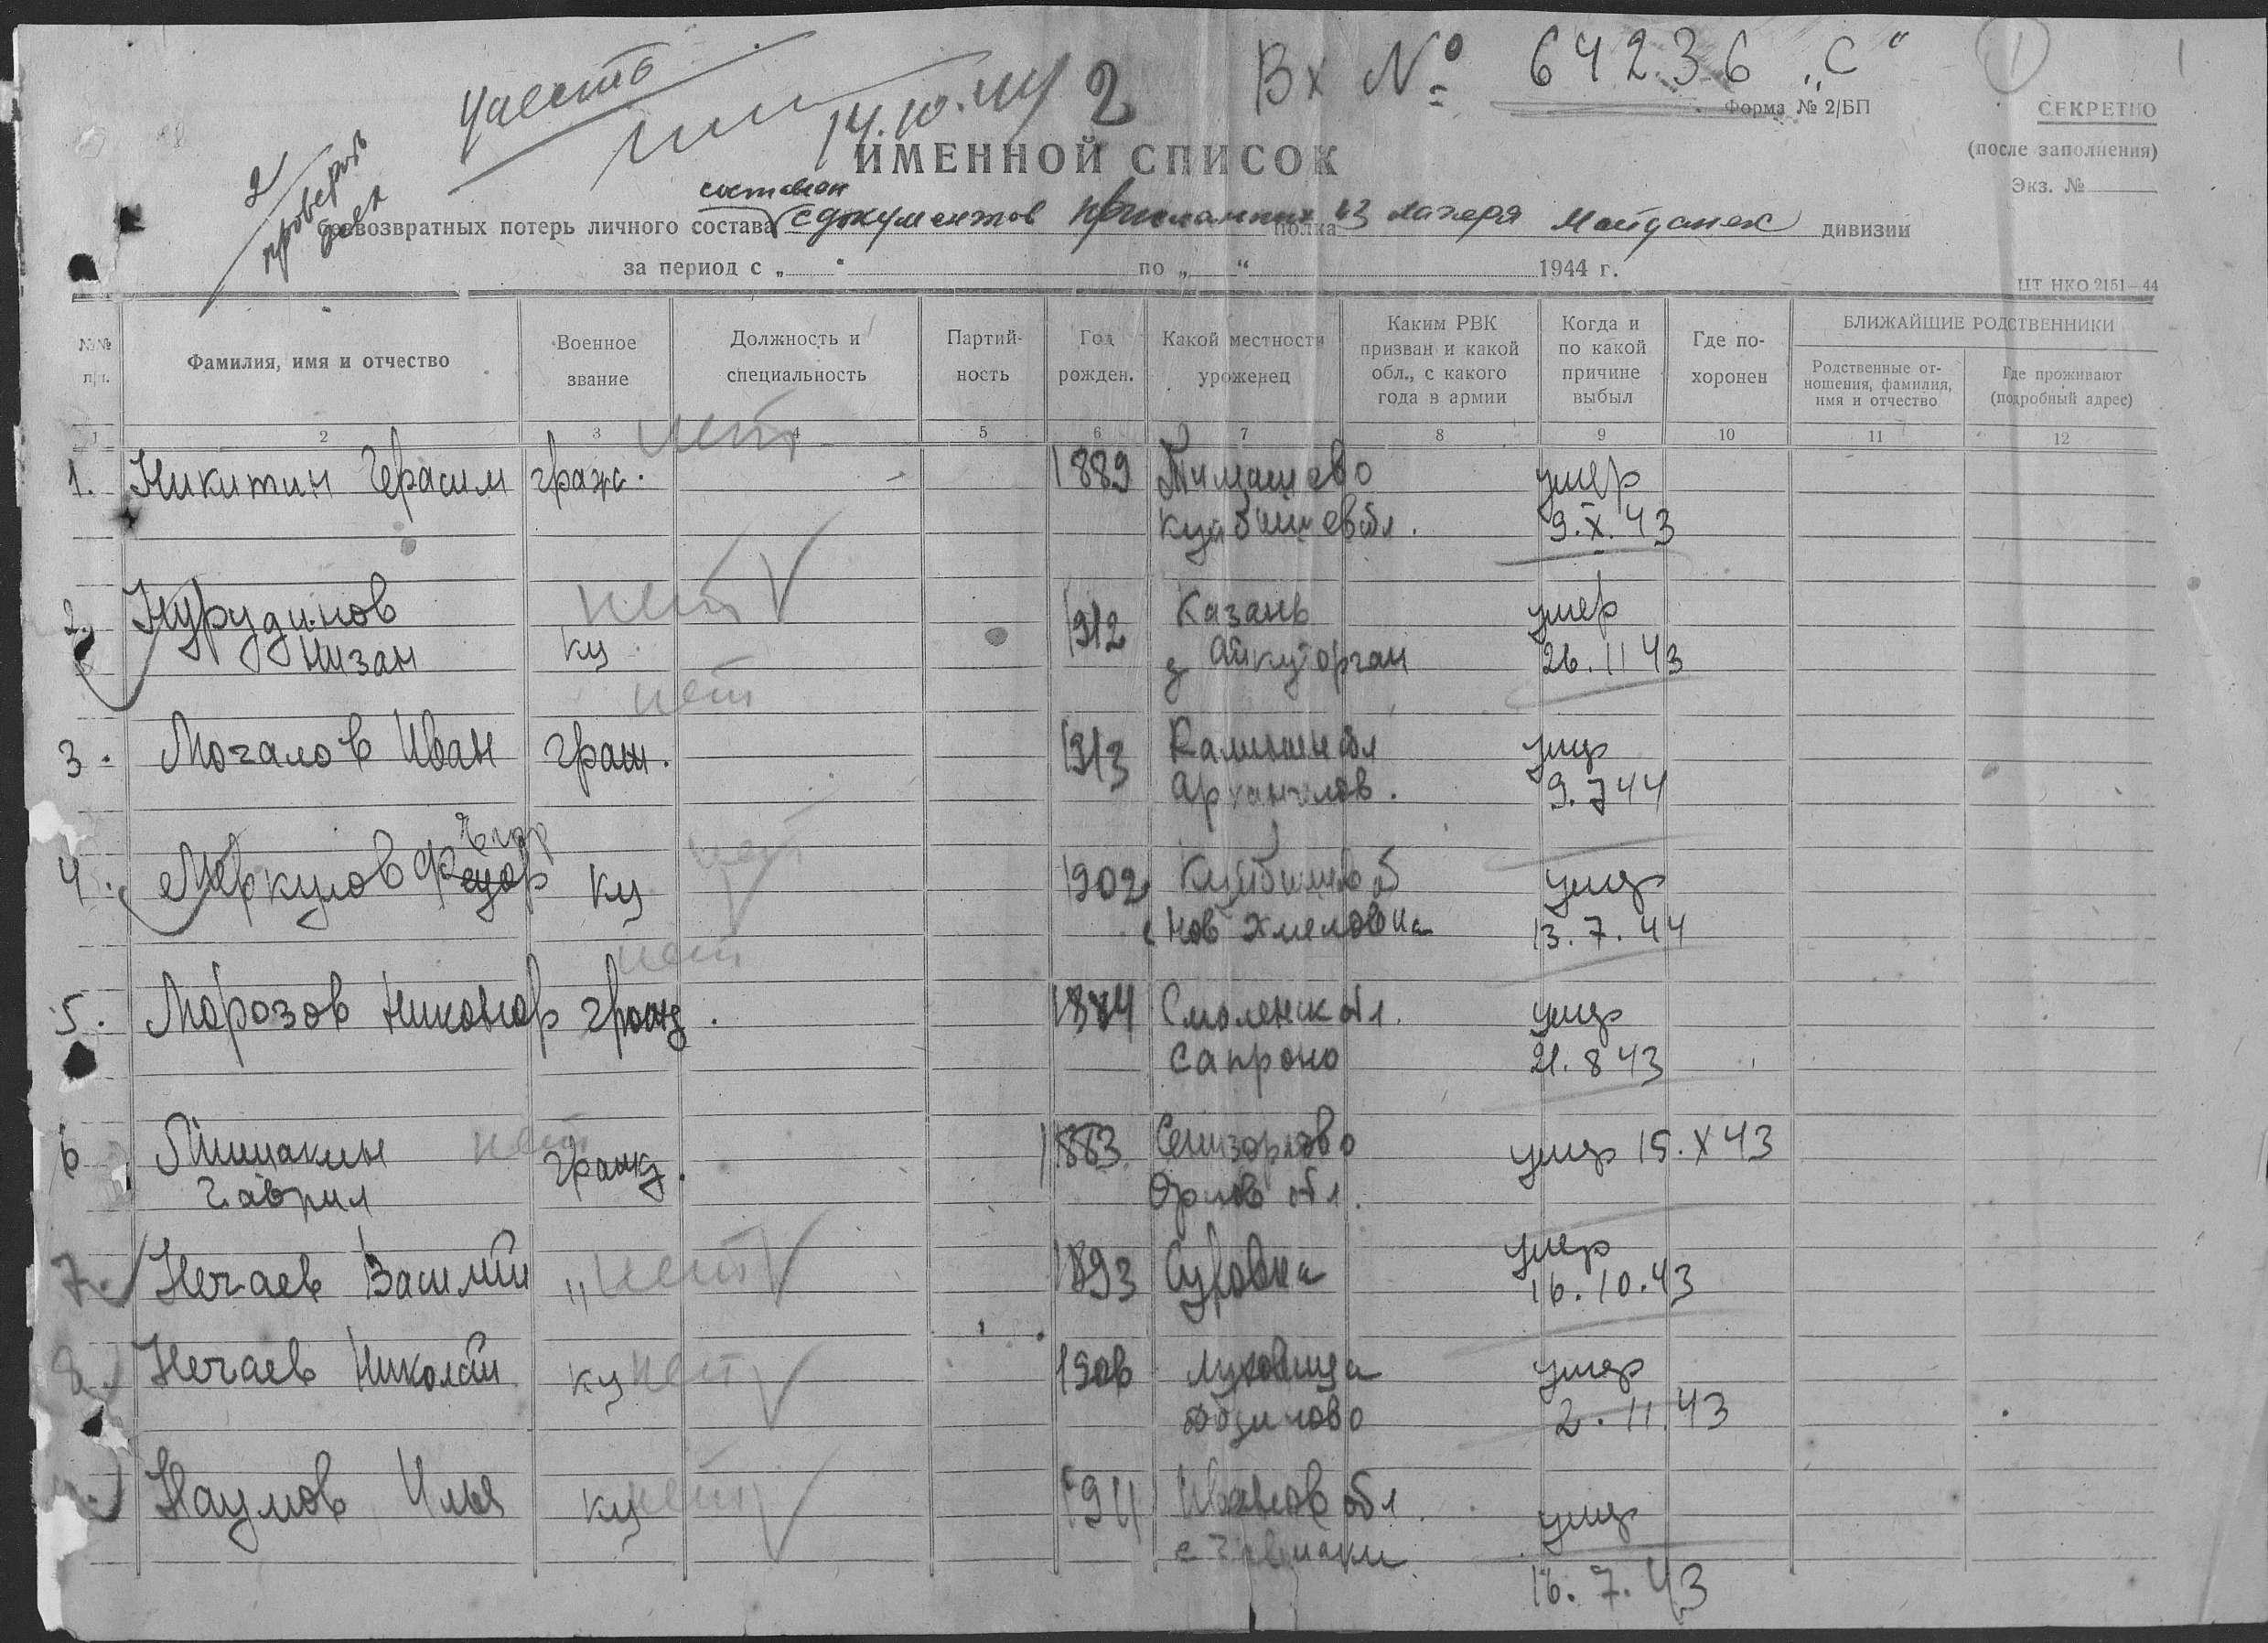 учесть
14.10.44 2
Вх № 64236 „С“
1
1
Форма № 2/БП
СЕКРЕТНО
(после заполнения)
Экз. №
2/ проверить
ИМЕННОЙ СПИСОК
составлен
безвозвратных потерь личного состава с документов присланных полка из лагеря Майданек дивизии
за период с „ “ по „ “ 1944 г.
ЦТ НКО 2151—44
№№ п/п.
Фамилия, имя и отчество
Военное звание
Должность и специальность
Партий-ность
Год рожден.
Какой местности уроженец
Каким РВК призван и какой обл., с какого года в армии
Когда и по какой причине выбыл
Где по-хоронен
БЛИЖАЙШИЕ РОДСТВЕННИКИ
Родственные от-ношения, фамилия, имя и отчество
Где проживают (подробный адрес)
1 2 3 4 5 6 7 8 9 10 11 12
нет
1. Никитин Герасим граж. 1889 Тимашево умер
Куйбышев обл. 9.X.43
нет
2. Нурудинов 1912 Казань умер
Низан ку д Айкуторган 26.11 43
нет
3. Мочалов Иван граж. 1913 Калинин обл умер
Архангелов. 9.7 44
Егор
нет
4. Меркулов Федор ку 1902 Куйбышев об умер
с Нов Хмеловка 13.7.44
нет
5. Морозов Никонор гражд. 1874 Смоленск обл. умер
Сапроно 21.8 43
нет
6 Мишакин гражд. 1883 умер 15.X 43
Гаврил Орлов обл.
7. Нечаев Василий " нет 1893 Суровка умер
16.10.43
8. Нечаев Николай ку нет 1906 Луховица умер
2.11.43
Наумов Илья ку нет 1911 Иванов обл. умер
16.7.43